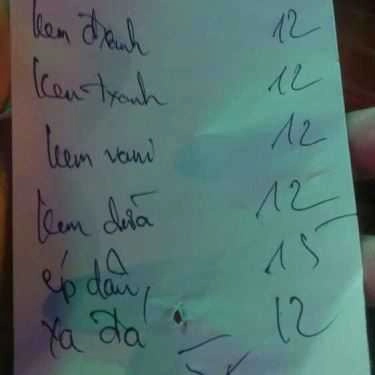 kem đxanh 12
kem txanh 12
kem vani 12
kem dừa 12
ép dâu 15
xả đá 12